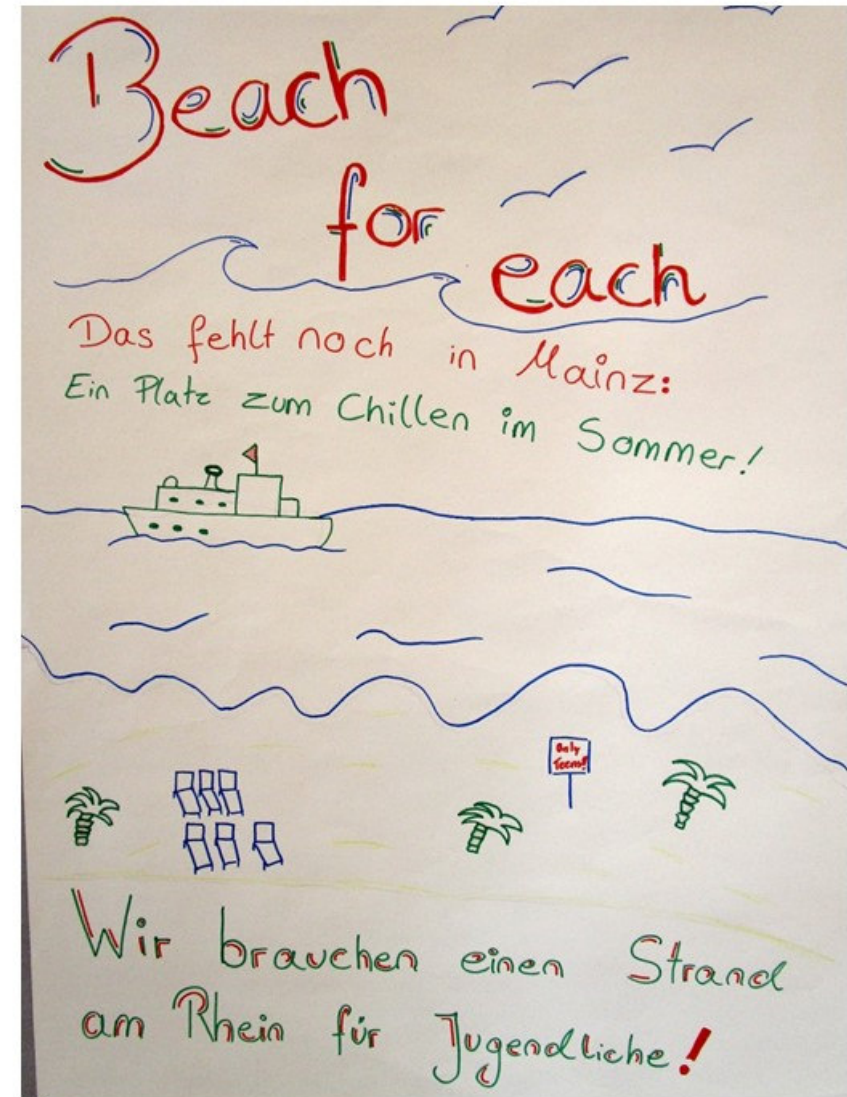 Beach
for
each
Das fehlt noch in Mainz:
Ein Platz zum Chillen im Sommer!
Only
Teens!
Wir brauchen einen Strand
am Rhein für Jugendliche!